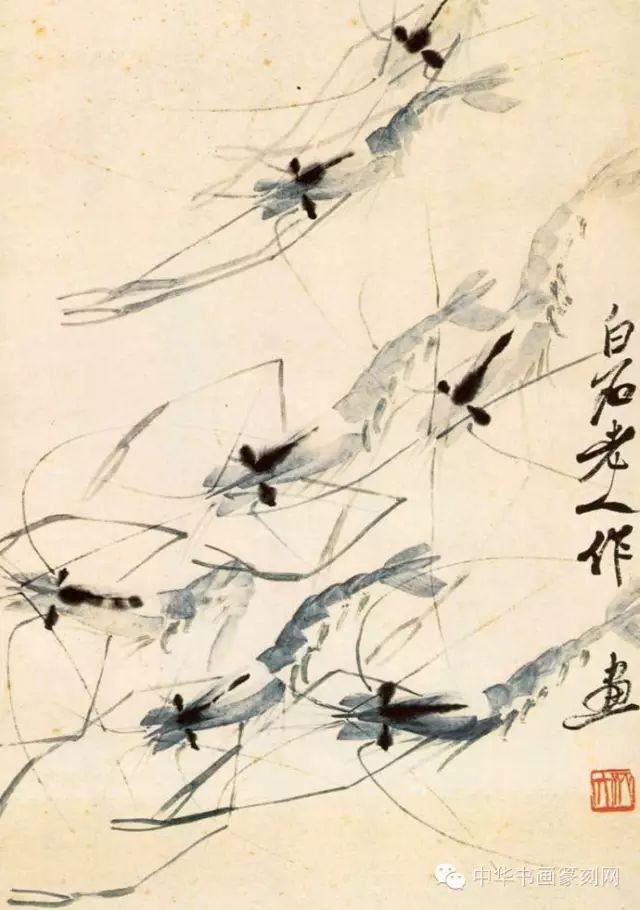 白石老人作画
中华书画篆刻网